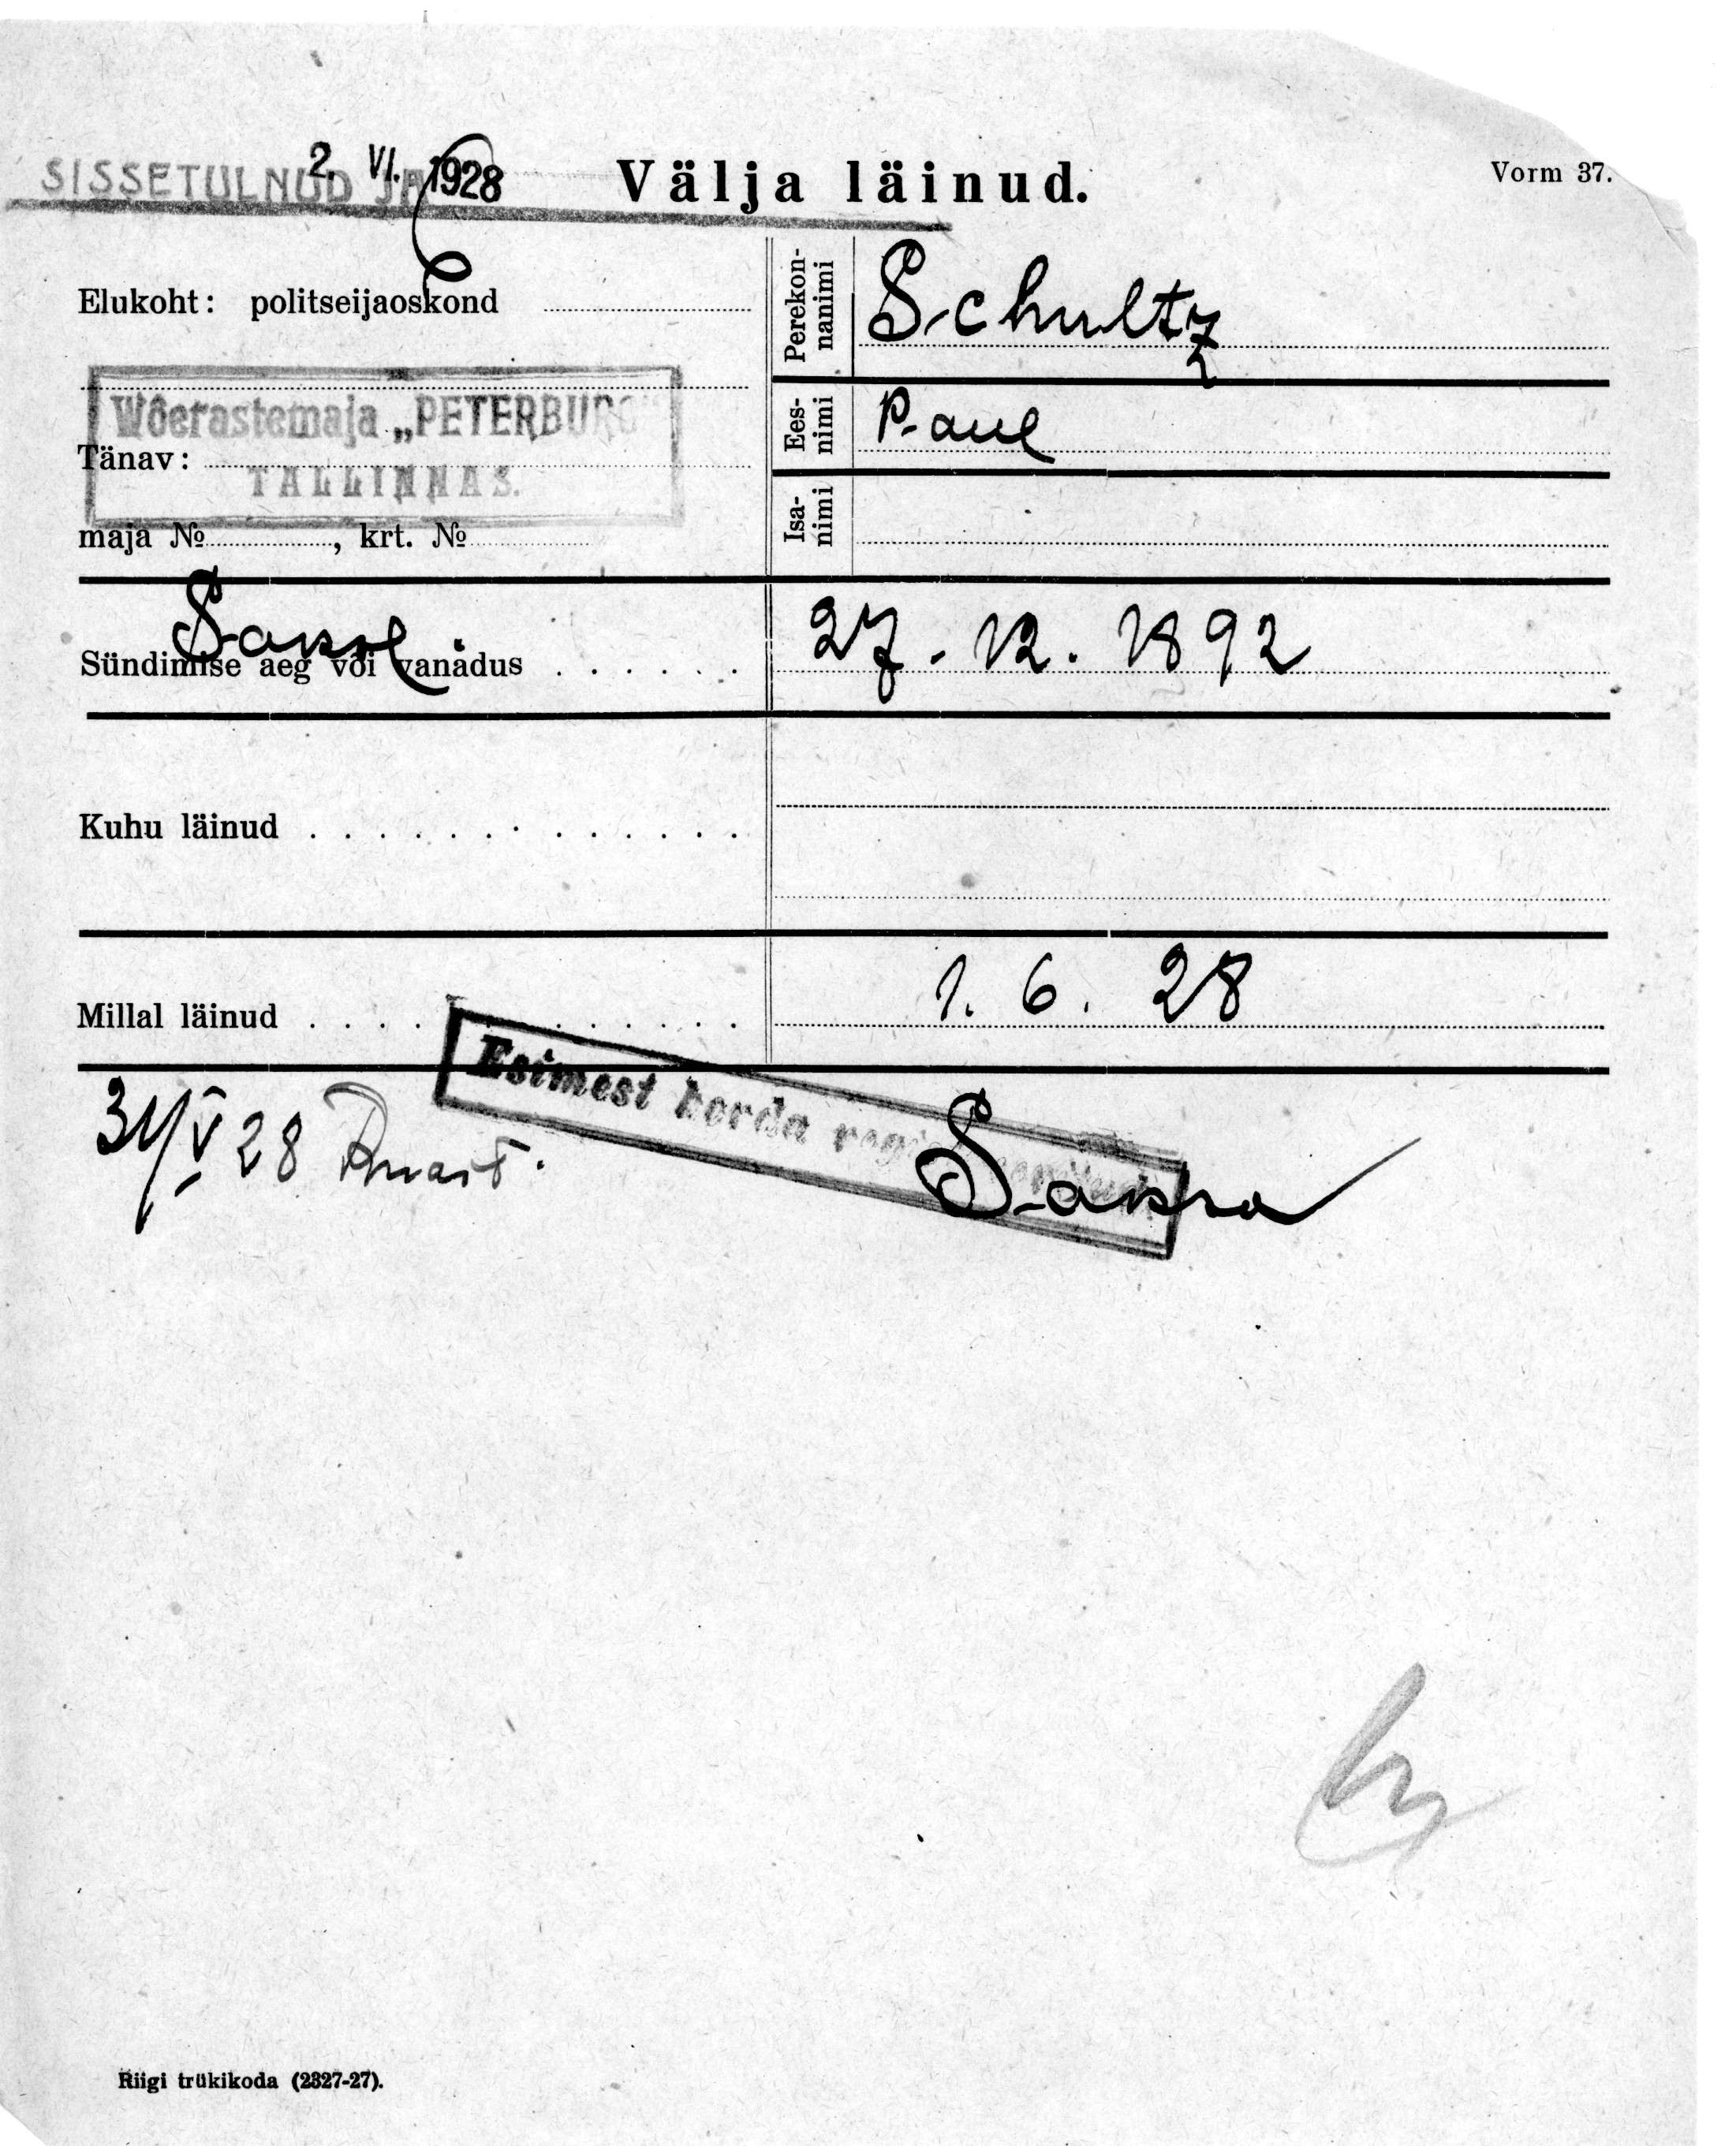 2. VI. 1928
SISSETULNUD JA Välja läinud.
Vorm 37.
Elukoht: politseijaoskond
Wõerastemaja „PETERBURG"
TALLINNAS.
Tänav:
maja № , krt. №
Perekon-
nanimi
Schultz
Ees-
nimi
Paul
Isa-
nimi
Saksl.
Sündimise aeg või vanadus . . . . . .
27. 12. 1892
Kuhu läinud . . . . . . . . . . . . .
Millal läinud . . . . . . . . . . . . .
1. 6. 28
Esimest korda registreeritud
31/V 28
Saksa
Riigi trükikoda (2327-27).